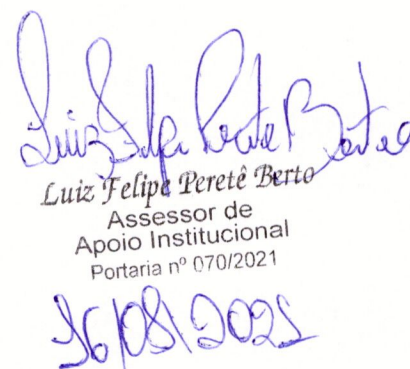 Luiz Felipe Peretê Berto
Luiz Felipe Peretê Berto
Assessor de
Apoio Institucional
Portaria nº 070/2021
16/08/2021